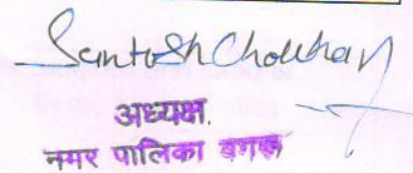 Santosh Chouhan
अध्यक्ष.
नगर पालिका